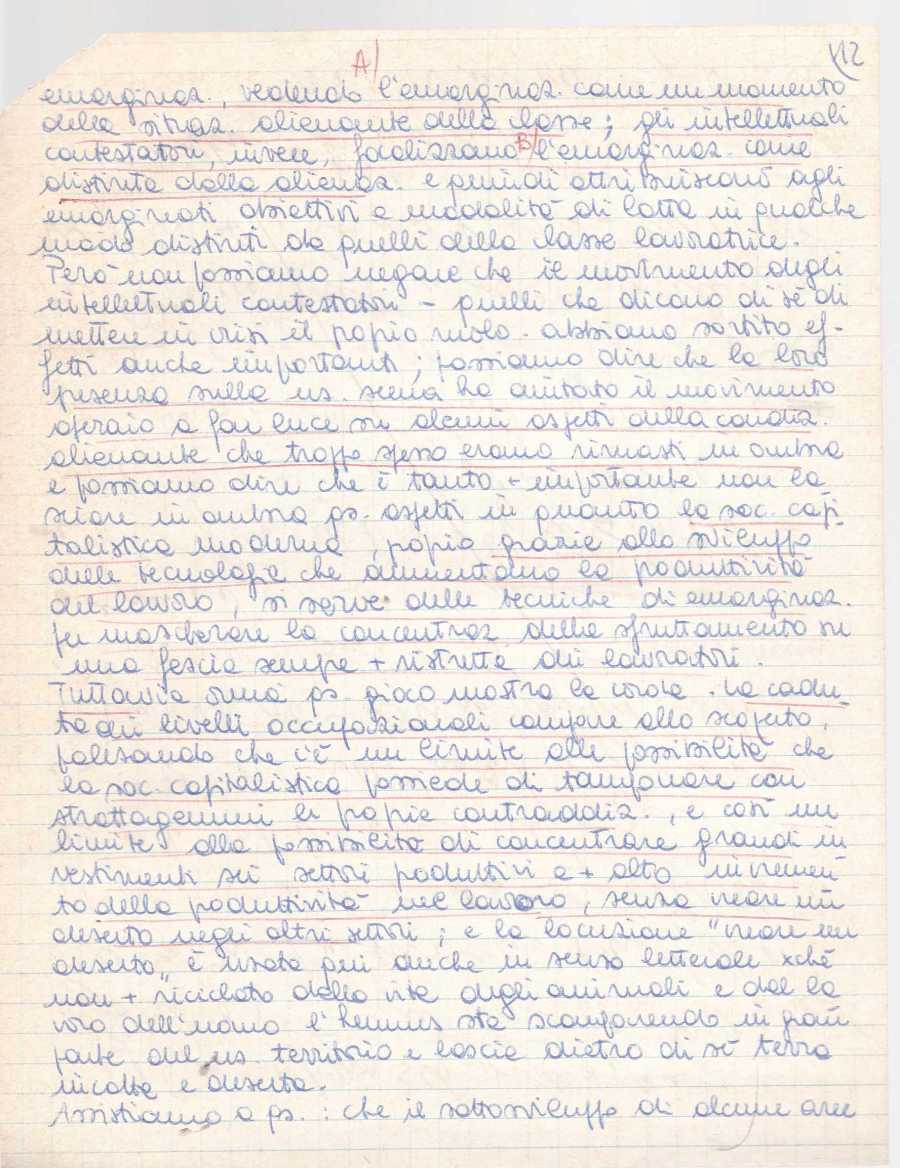 A/
112
emarginaz., vedendo l'emarginaz. come un momento
della situaz. alienante della classe; gli intellettuali
contestatori, invece, focalizzano B/ l'emarginaz. come
distinta dalla alienaz. e quindi attribuiscono agli
emarginati obiettivi e modalità di lotta in qualche
modo distinti da quelli della classe lavoratrice.
Però non possiamo negare che il movimento degli
intellettuali contestatori - quelli che dicono di sé di
mettere in crisi il proprio ruolo - abbiano sortito ef-
fetti anche importanti; possiamo dire che la loro
presenza sulla ns. scena ha aiutato il movimento
operaio a far luce su alcuni aspetti della condiz.
alienante che troppo spesso erano rimasti in ombra
e possiamo dire che è tanto + importante non la
sciare in ombra qs. aspetti in quanto la soc. capi-
talistica moderna, proprio grazie allo sviluppo
delle tecnologie che aumentano la produttività
del lavoro, si serve delle tecniche di emarginaz.
per mascherare la concentraz. dello sfruttamento su
una fascia sempre + ristretta dei lavoratori.
Tuttavia ormai qs. gioco mostra la corda. La cadu-
ta dei livelli occupazionali compare allo scoperto,
palesando che c'è un limite alle possibilità che
la soc. capitalistica possiede di tamponare con
strattagemmi le proprie contraddiz., e così un
limite alla possibilità di concentrare grandi in
vestimenti sui settori produttivi a + alto incremen
to della produttività nel lavoro, senza creare un
deserto negli altri settori; e la locuzione "creare un
deserto" è usata qui anche in senso letterale xchè
non + riciclato dalla vita degli animali e dal la
voro dell'uomo l'humus sta scomparendo in gran
parte del ns. territorio e lascia dietro di sé terra
incolta e deserta.
Assistiamo a qs.: che il sottosviluppo di alcune aree